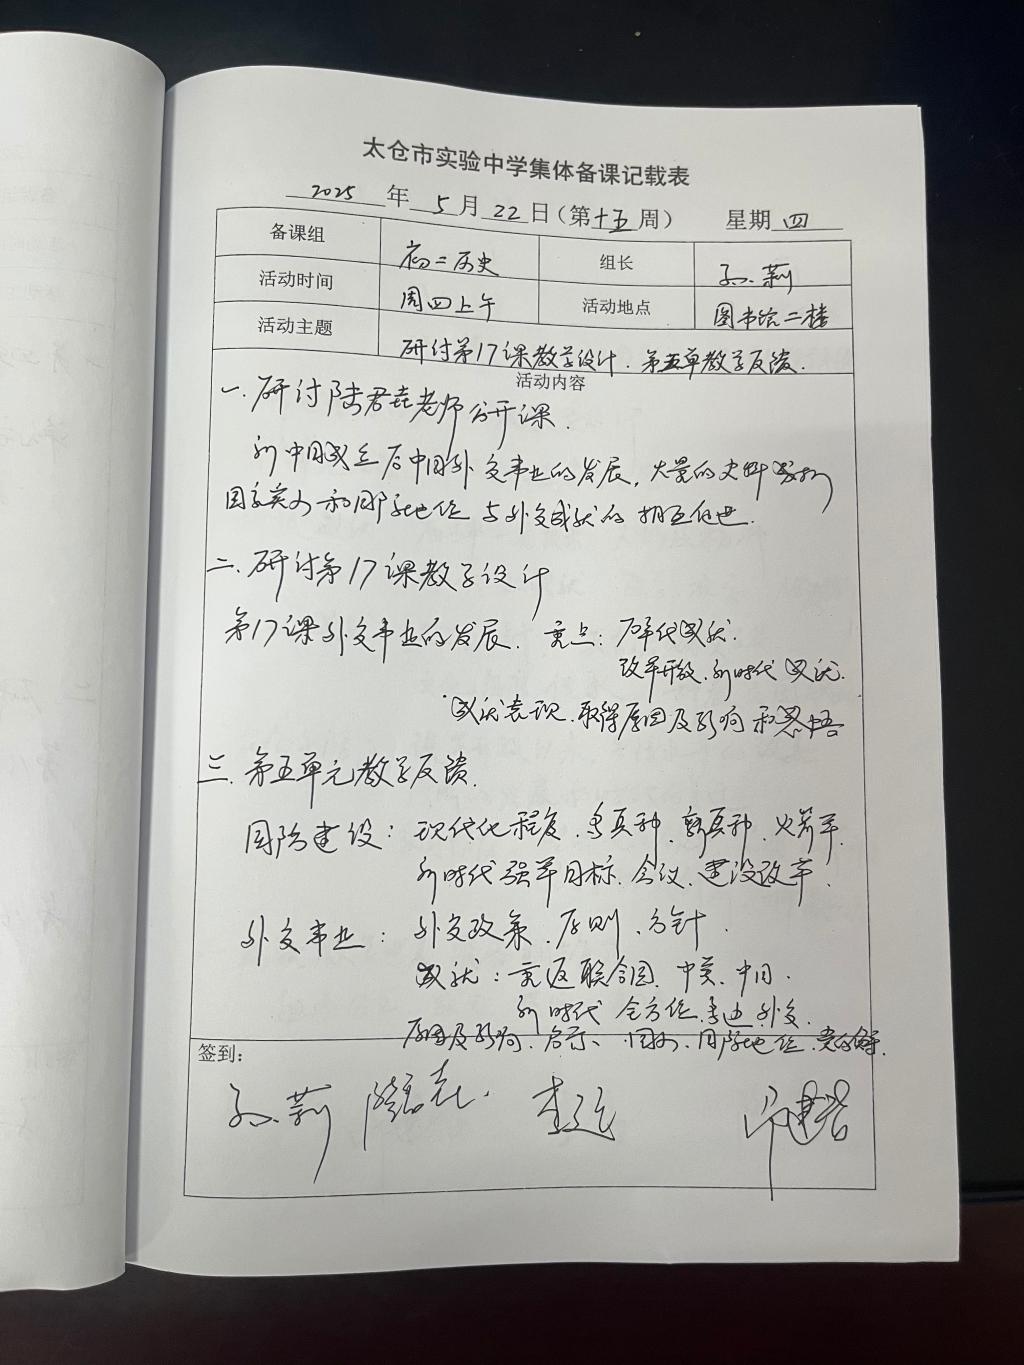 太仓市实验中学集体备课记载表
2025 年 5 月 22 日（第十五周） 星期 四
备课组 初二历史 组长 孙莉
活动时间 周四上午 活动地点 图书馆二楼
活动主题 研讨第17课教学设计.第五单教学反馈.
活动内容
一.研讨陆君垚老师公开课.
新中国成立后中国外交事业的发展,大量的史料
国家实力和国际地位与外交成就的相互
二.研讨第17课教学设计
第17课外交事业的发展. 重点: 年代成就.
改革开放.新时代成就.
成就表现.取得原因及影响和感悟
三.第五单元教学反馈.
国防建设: 现代化程度.多兵种.新兵种.火箭军.
新时代强军目标.会议.建设改革.
外交事业: 外交政策.原则.方针.
成就:重返联合国.中美.中日.
新时代全方位.多边外交.
原因及影响.启示、国力.国际地位.
签到:
孙莉